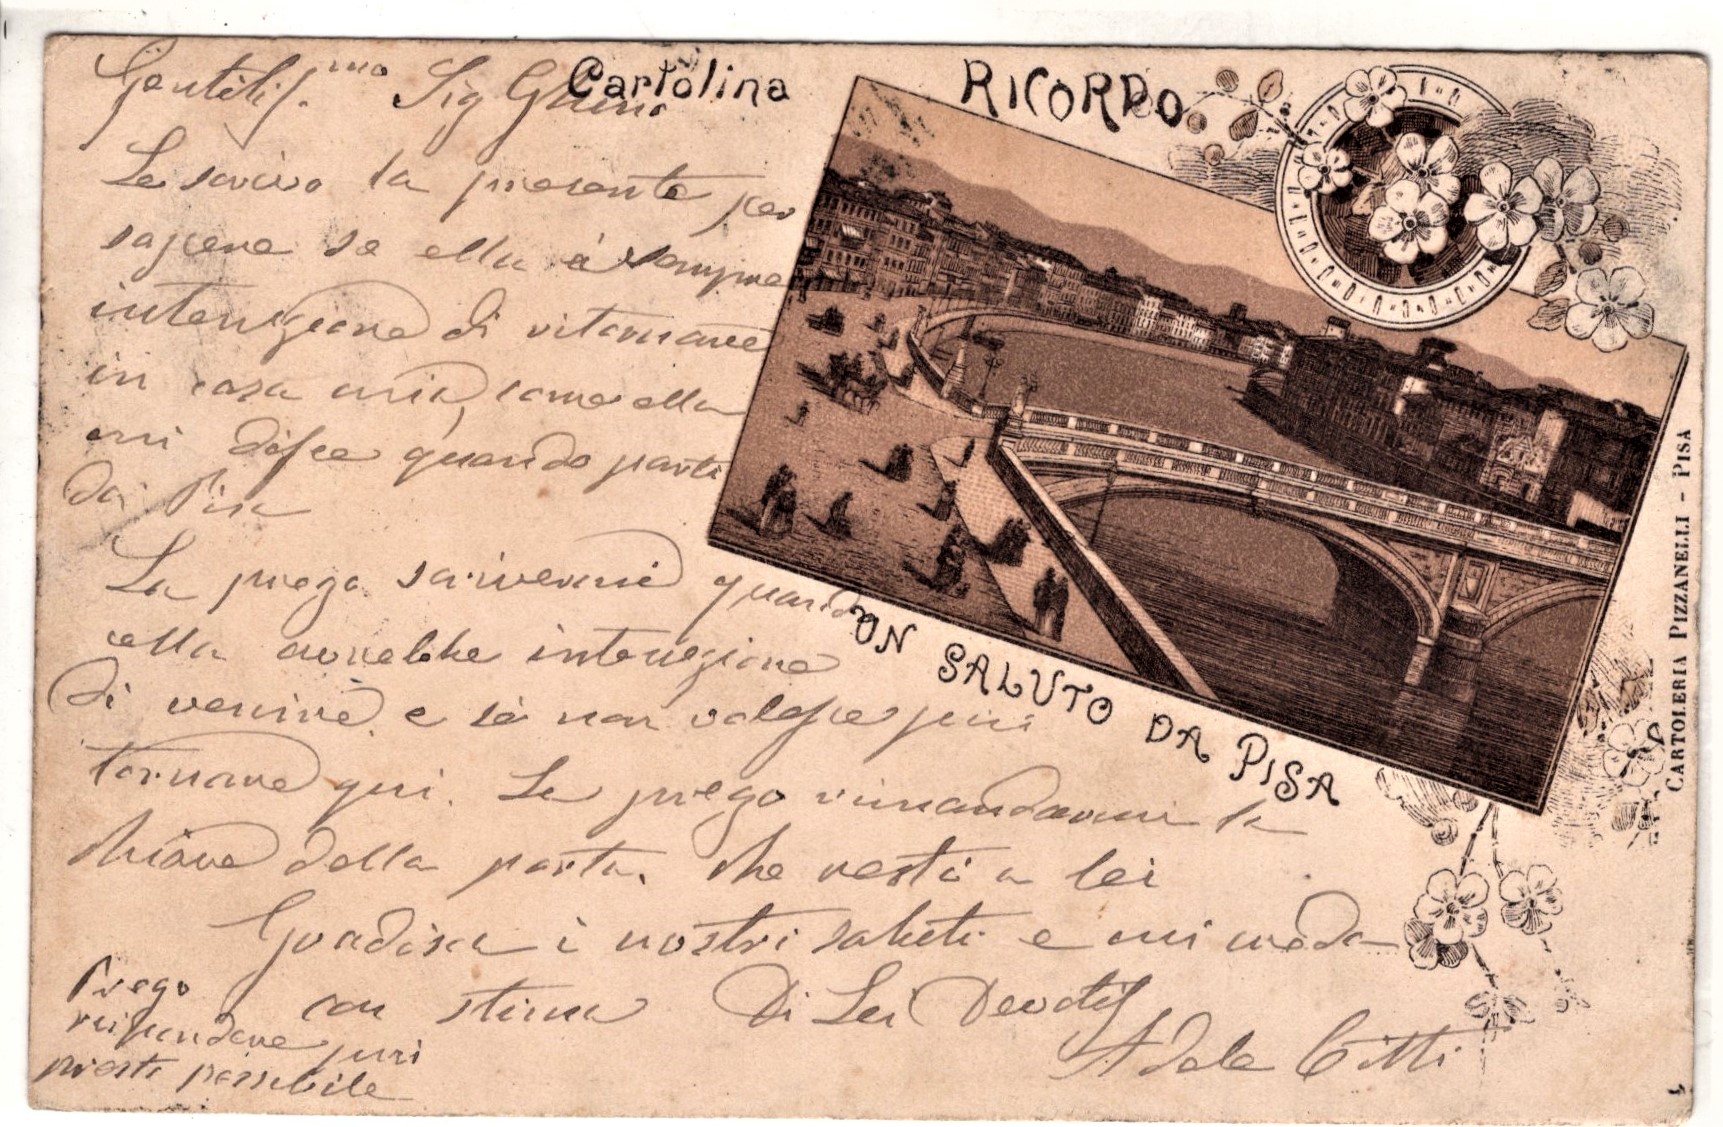 Cartolina RICORDO
Gentilis.mo Sig
Le scrivo la presente per
sapere se ella à sempre
intenzione di ritornare
in casa mia, come ella
mi disse quando parti
da Pisa
La prego scrivermi quando
ella avrebbe intenzione
di venire e se non volesse piu
tornare qui. Le prego rimandarmi la
chiave della porta, che restò a lei
Gradisca i nostri saluti e mi creda
con stima Di Lei Devotis
Adele Citti
Prego
rispondere piu
presto possibile
UN SALUTO DA PISA
CARTOLERIA PIZZANELLI - PISA